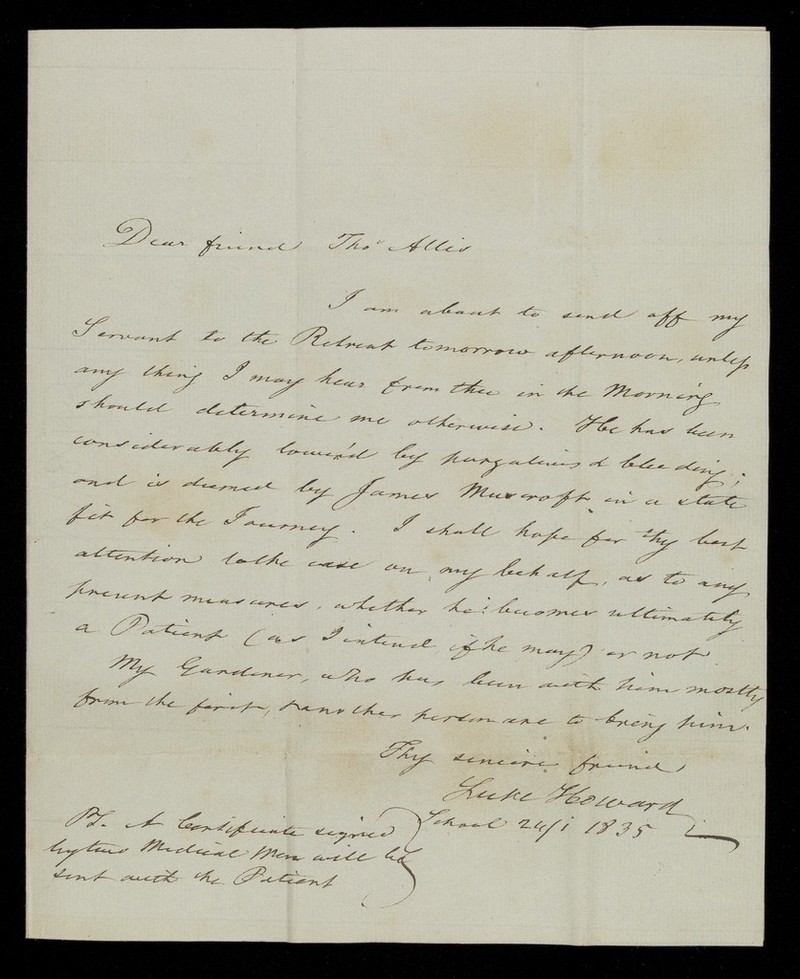 Dear friend Thos Allis
I am about to send off my
Servant to the Retreat tomorrow afternoon, unless
any thing I may hear from thee in the Morning
should determine me otherwise. He has been
considerably lower'd by purgatives & bleeding;
and is deemed by James Muscroft in a state
fit for the Journey. I shall hope for thy best
attention to the case on my behalf, as to any
present measures, whether he becomes ultimately
a Patient (as I intend if he may) or not.
My Gardener, who has been with him mostly
from the first, & another person are to bring him.
Thy sincere friend
Luke Howard
1835
PS. A Certificate signed
by two Medical Men will be
sent with the Patient